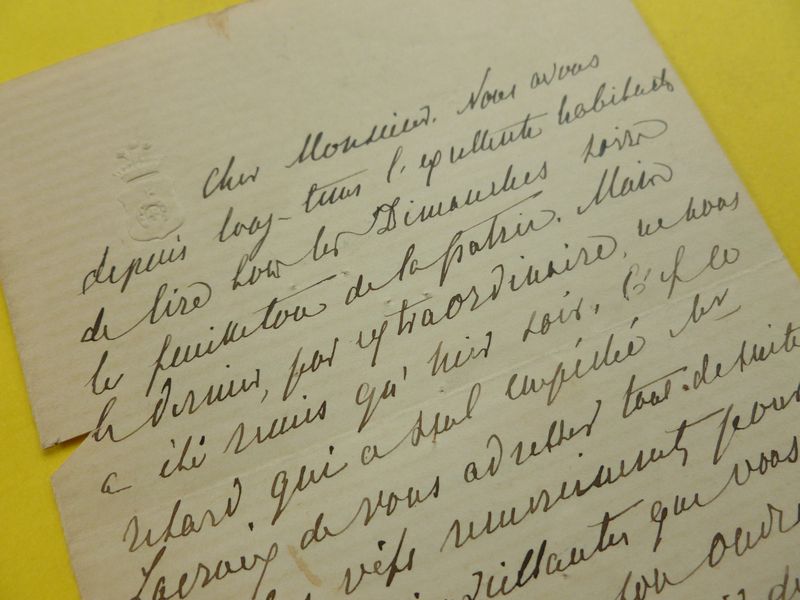 Cher Monsieur. Nous avons
depuis long-tems l'excellente habitude
de lire tous les Dimanches soirs
le feuilleton de la patrie. Mais
le dernier, par extraordinaire, ne nous
a été remis qu'hier soir, C'est ce
retard qui a seul empêché Mr
Lacroix de vous adresser tout-de-suite
vifs remerciments pour
bienveillantes que vous
son ouvre